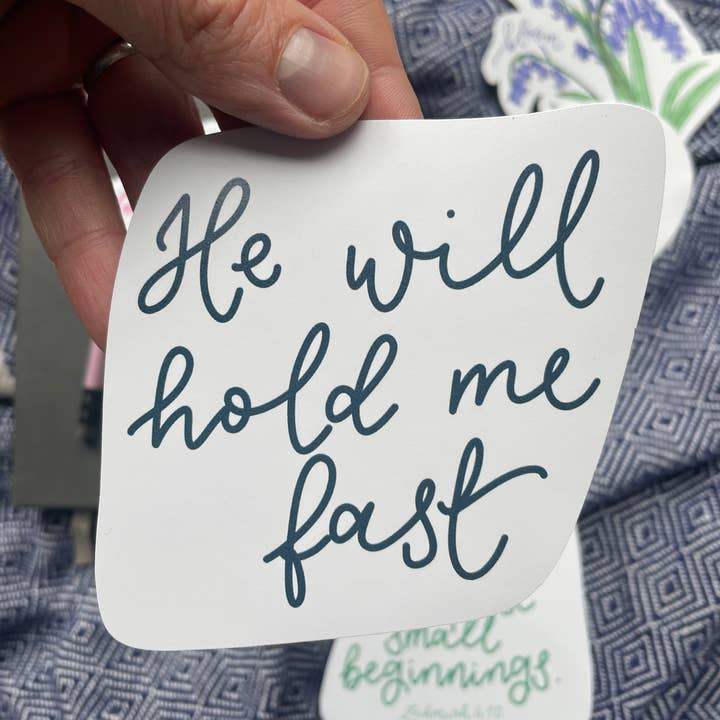 He will
hold me
fast
small
beginnings.